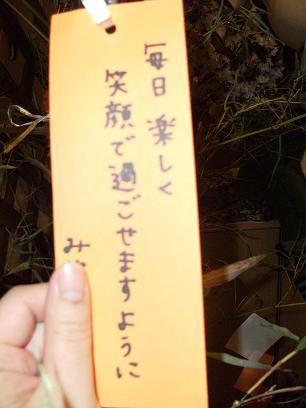 毎日楽しく
笑顔で過ごせますように
み